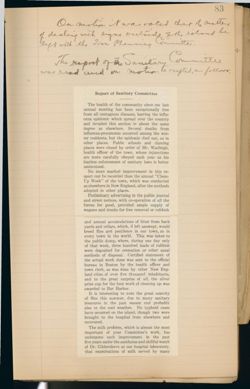 83
On motion it was voted that the matter
of dealing with signs outside of the island be
left with the Town Planning Committee.
The report of the Sanitary Committee
was read and on motion accepted, as follows,
Report of Sanitary Committee
The health of the community since our last
annual meeting has been exceptionally free
from all contagious diseases, barring the influ-
enza epidemic which spread over the country
and invaded this section to about the same
degree as elsewhere. Several deaths from
influenza-pneumonia occurred among the win-
ter residents, but the epidemic died out, as in
other places. Public schools and dancing
places were closed by order of Mr.
health officer of the town, whose injunctions
are more carefully obeyed each year as his
fearless enforcement of sanitary laws is better
understood.
No more marked improvement in this re-
spect can be recorded than the annual "Clean-
Up Week" of the town, which was conducted
as elsewhere in New England, after the methods
adopted in other places.
Preliminary advertising in the public journal
and street notices, with co-operation of all the
forces for good, provided ample supply of
wagons and trucks for free removal of rubbish
and annual accumulations of litter from back
yards and others, which, if left unswept, would
breed flies and pestilence in our town, as in
every town in the world. This was taken to
the public dump, where, during one day only
of that week, three hundred loads of rubbish
were deposited for cremation or other usual
methods of disposal. Certified statement of
the actual work done was sent to the official
bureau in Boston by the health officer and
town clerk, as was done by other New Eng-
land cities of over five thousand inhabitants,
and to the great surprise of all the silver
prize cup for the best work of cleaning up was
awarded to Bar Harbor.
It is interesting to note the great scarcity
of flies this summer, due to many sanitary
measures in the past season and probably
also to the cool weather. No typhoid cases
have occurred on the island, though two were
brought to the hospital from elsewhere and
recovered.
The milk problem, which is almost the most
important of your Committee's work, has
undergone such improvement in the past
five years under the assiduous and skillful works
of Dr. at our hospital laboratory,
that examinations of milk served by many